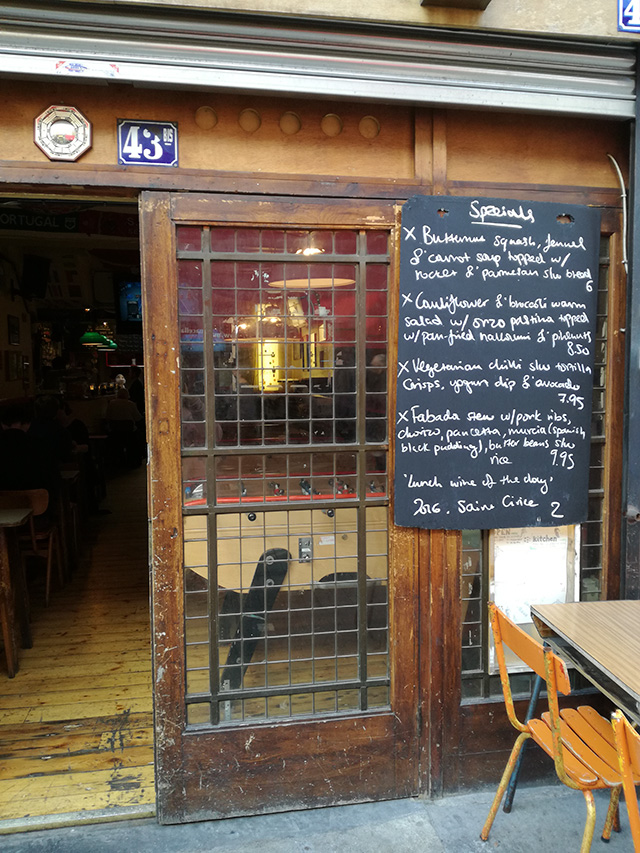 4
43 BIS
PORTUGAL
Specials
X Butternut squash, fennel
& carrot soup topped w/
rocket & parmesan s/w bread
6
X Cauliflower & brocoli warm
salad w/ orzo pastina topped
w/ pan-fried halloumi & pinenuts
8.50
X Vegetarian chilli s/w tortilla
crisps, yogurt dip & avocado
7.95
X Fabada stew w/ pork ribs,
chorizo, pancetta, murcia (spanish
black pudding), butter beans s/w
rice 9.95
'Lunch wine of the day'
2016. Saint Cirice 2
kitchen